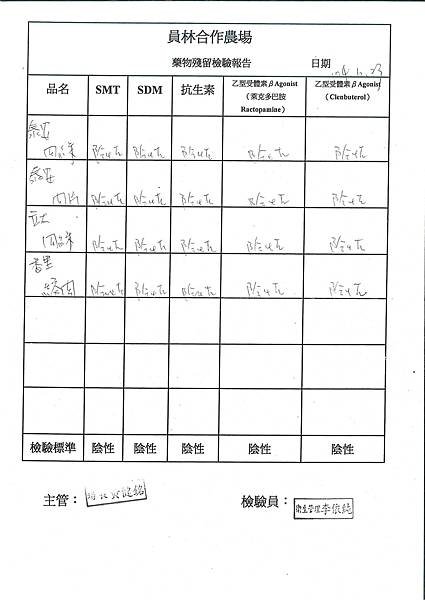 員林合作農場
藥物殘留檢驗報告 日期
品名 SMT SDM 抗生素 乙型受體素βAgonist（萊克多巴胺Ractopamine） 乙型受體素βAgonist（Clenbuterol）
陰性 陰性 陰性 陰性 陰性
陰性 陰性 陰性 陰性 陰性
陰性 陰性 陰性 陰性 陰性
陰性 陰性 陰性 陰性 陰性
檢驗標準 陰性 陰性 陰性 陰性 陰性
主管： 檢驗員：
衛生管理李依純